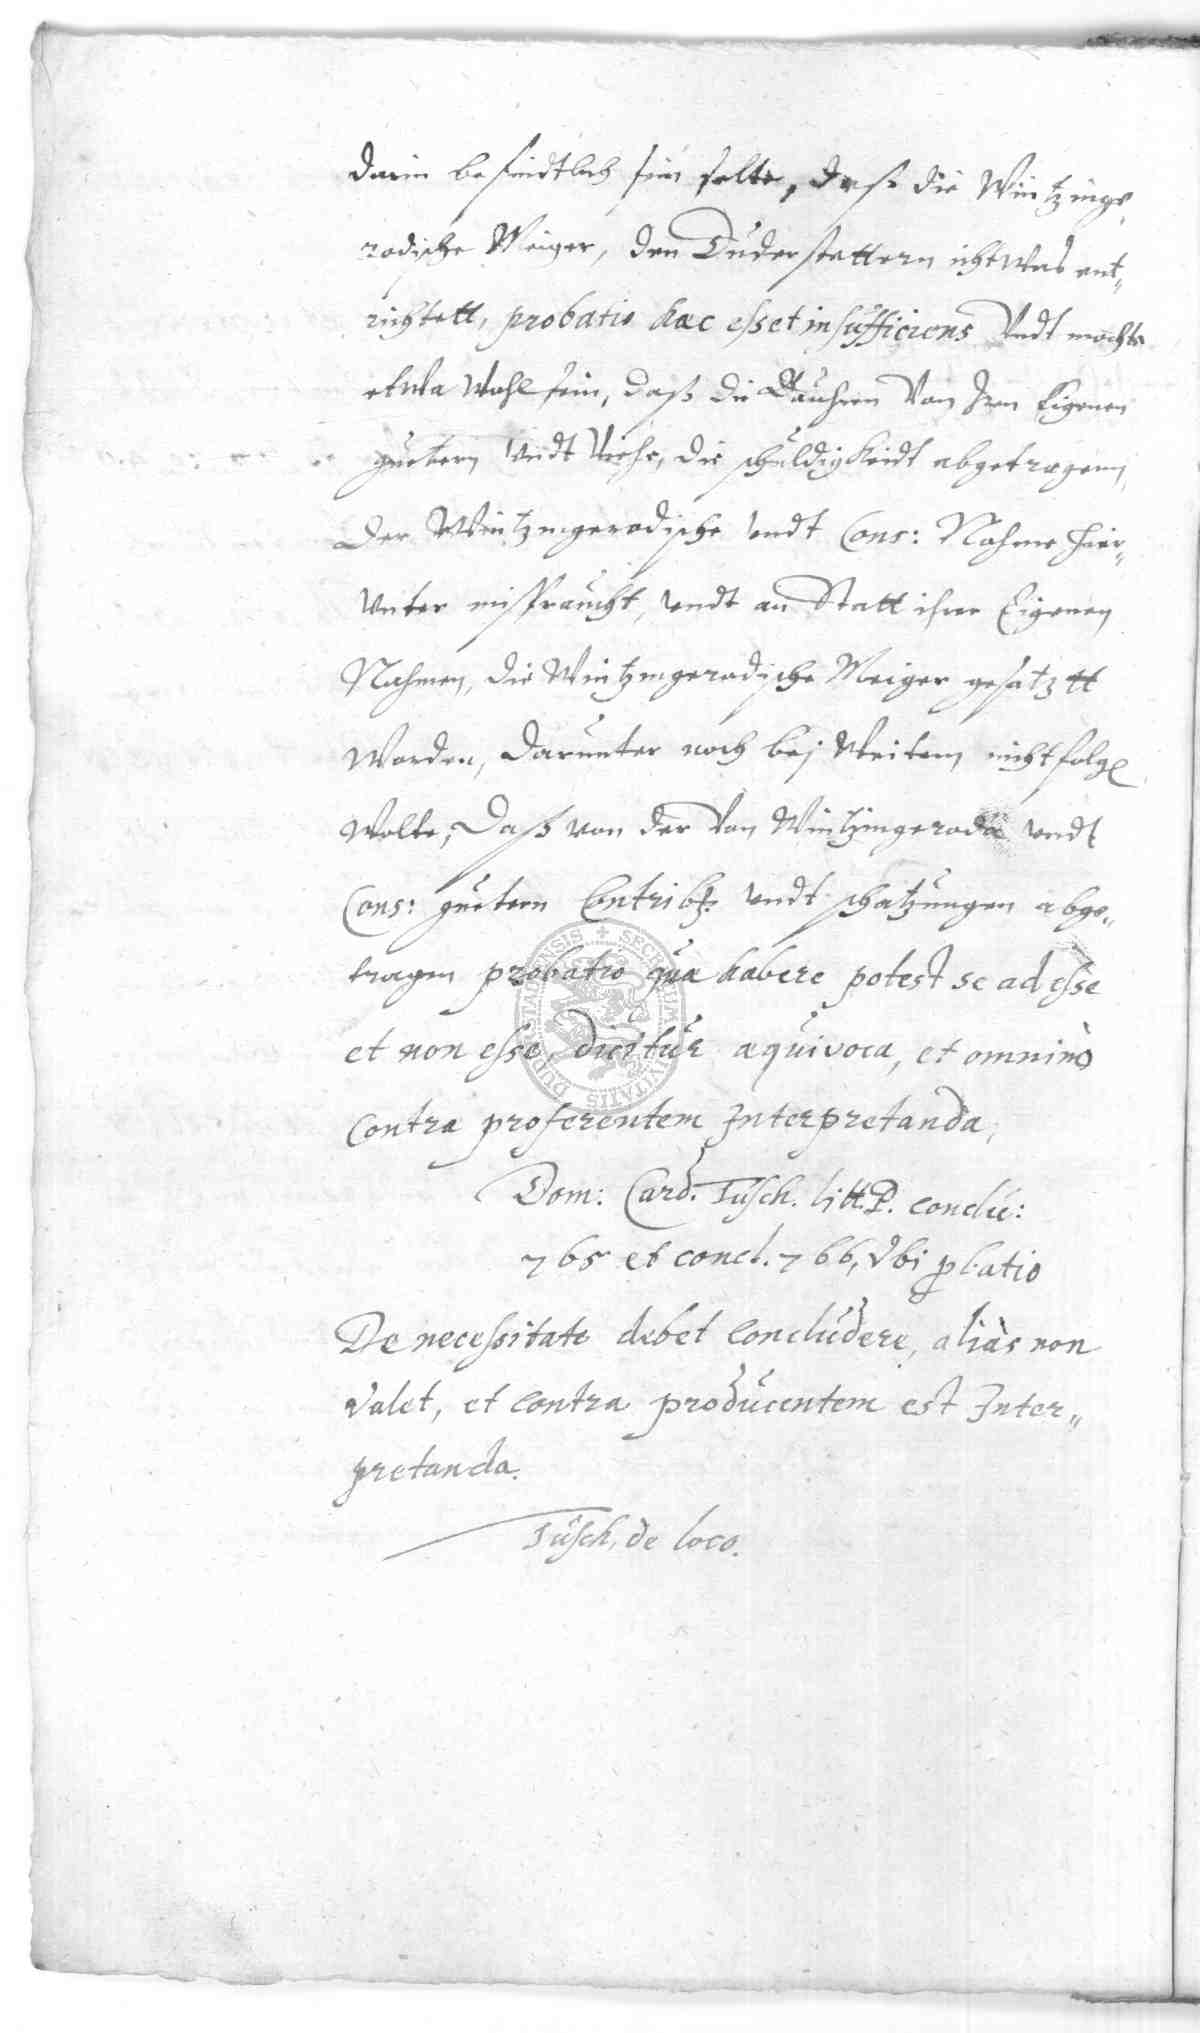 darin befindtlich sein solte, daß die Wintzinge
rodische Meiger, den Duderstattern ichtwas ent„
richtett, probatio haec esset insufficiens Vndt mochte
etwa wohl sein, daß die Bauhren von Iren Eigenen
guetern vndt Viehe, die schuldigkeidt abgetragenn,
Der Wintzingerodische vndt Cons: Nahme hier„
vnter mißbraucht, vndt an Statt ihrer Eigenen
Nahmen, die Wintzingerodische Meiger gesatztt
worden, darunter noch bej weitem nicht folgen
wolte, Daß von der von Wintzingeroda vndt
Cons: guetern Contrib: vndt schatzungen abge„
tragen probatio quae habere potest se ad esse
et non esse, dicitur aequivoca, et omninò
contra proferentem Interpretanda,
Dom: Card. Tusch. litt. P. conclu:
765 et concl. 766, vbi p̱batio
De necessitate debet concludere, aliàs non
valet, et contra producentem est Inter„
pretanda.
Tusch, de loco.
SECRETUM CIVITATIS DUDERSTADENSIS